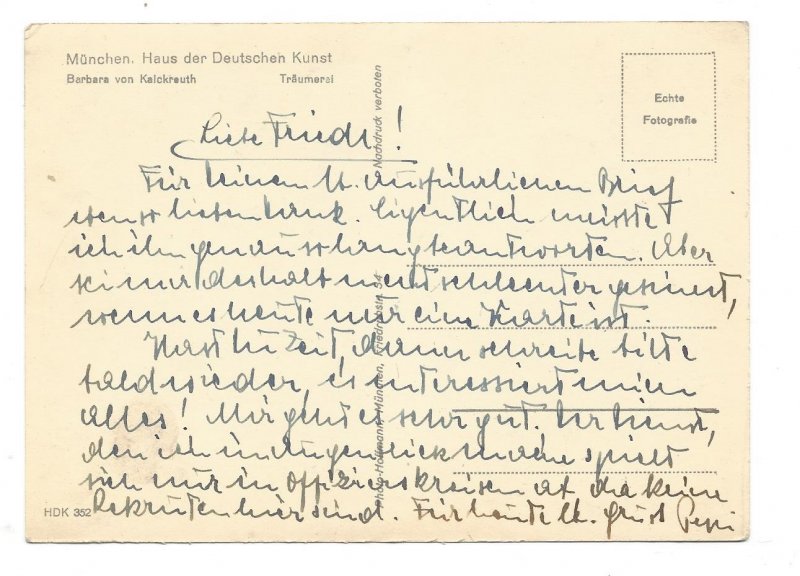 München. Haus der Deutschen Kunst
Barbara von Kalckreuth Träumerei
Echte
Fotografie
Nachdruck verboten
Photo-Hoffmann, München, Friedrichstr. 34
Liebe Friedl!
Für deinen lb. ausführlichen Brief
ebenso lieben Dank. Eigentlich müsste
ich ihn genau so lang beantworten. Aber
sei mir deshalb nicht schlechter gesinnt,
wenn es heute nur eine Karte ist.
Hast du Zeit, dann schreibe bitte
bald wieder, es interessiert mich
alles! Mir geht es sehr gut. Der Dienst,
den ich im Augenblick mache spielt
sich nur in Offizierskreisen ab da keine
Rekruten hier sind. Für heute lb. Gruß Peppi
HDK 352